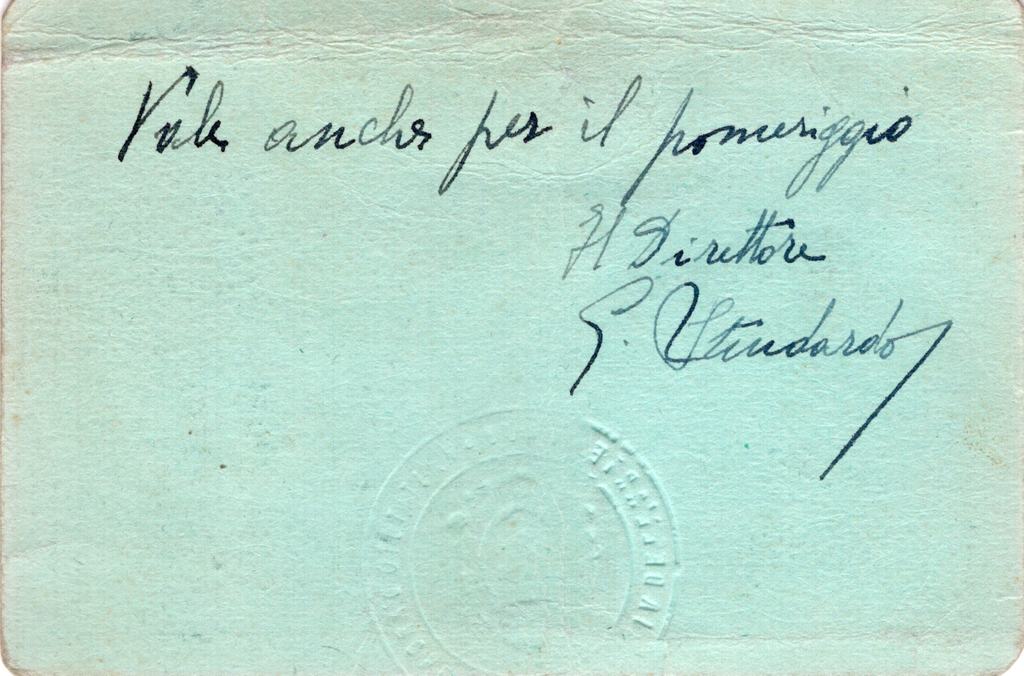 Vale anche per il pomeriggio
Il Direttore
G. Stendardo